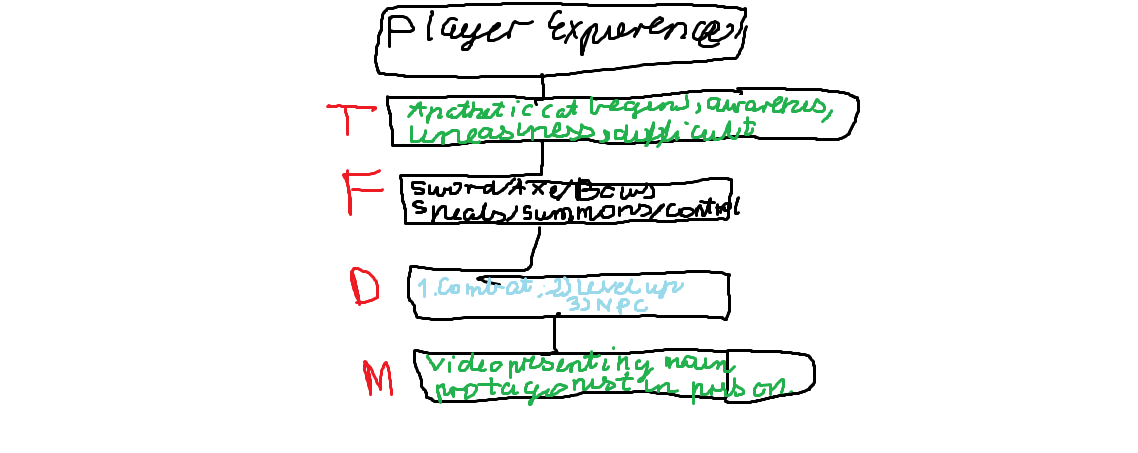 Player Experience
T
Apathetic cat begins, awareness,
uneasiness, difficult
F
Sword/Axe/Bows
Speals/summons/control
D
1. Combat, 2) Level up
3) NPC
M
Video presenting main
protagonist in prison.